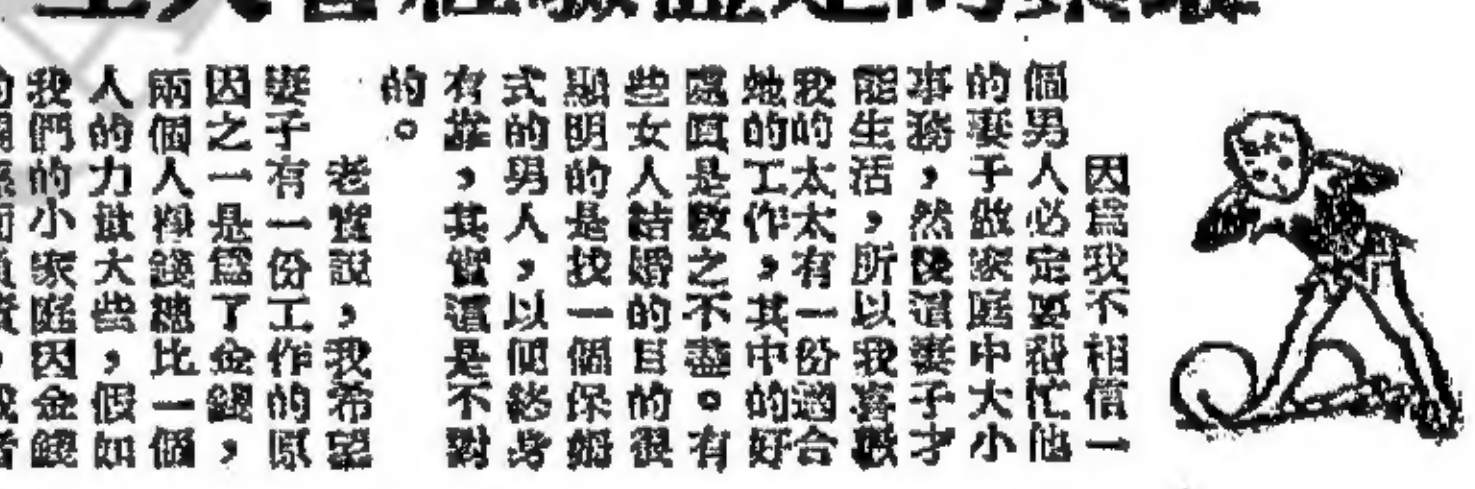 因爲我不相信一
個男人必定要殺忙他
的妻子做家庭中大小
事務，然後這妻子才
能生活，所以我喜歡
我的太太有一份適合
她的工作，其中的好
處眞是數之不盡。有
些女人結婚的目的很
顯明的是找一個保姆
式的男人，以便終身
有靠，其實這是不對
的。
老實說，我希望
妻子有一份工作的原
因之一是爲了金錢，
兩個人掙錢總比一個
人的力量大些，假如
我們的小家庭因金錢